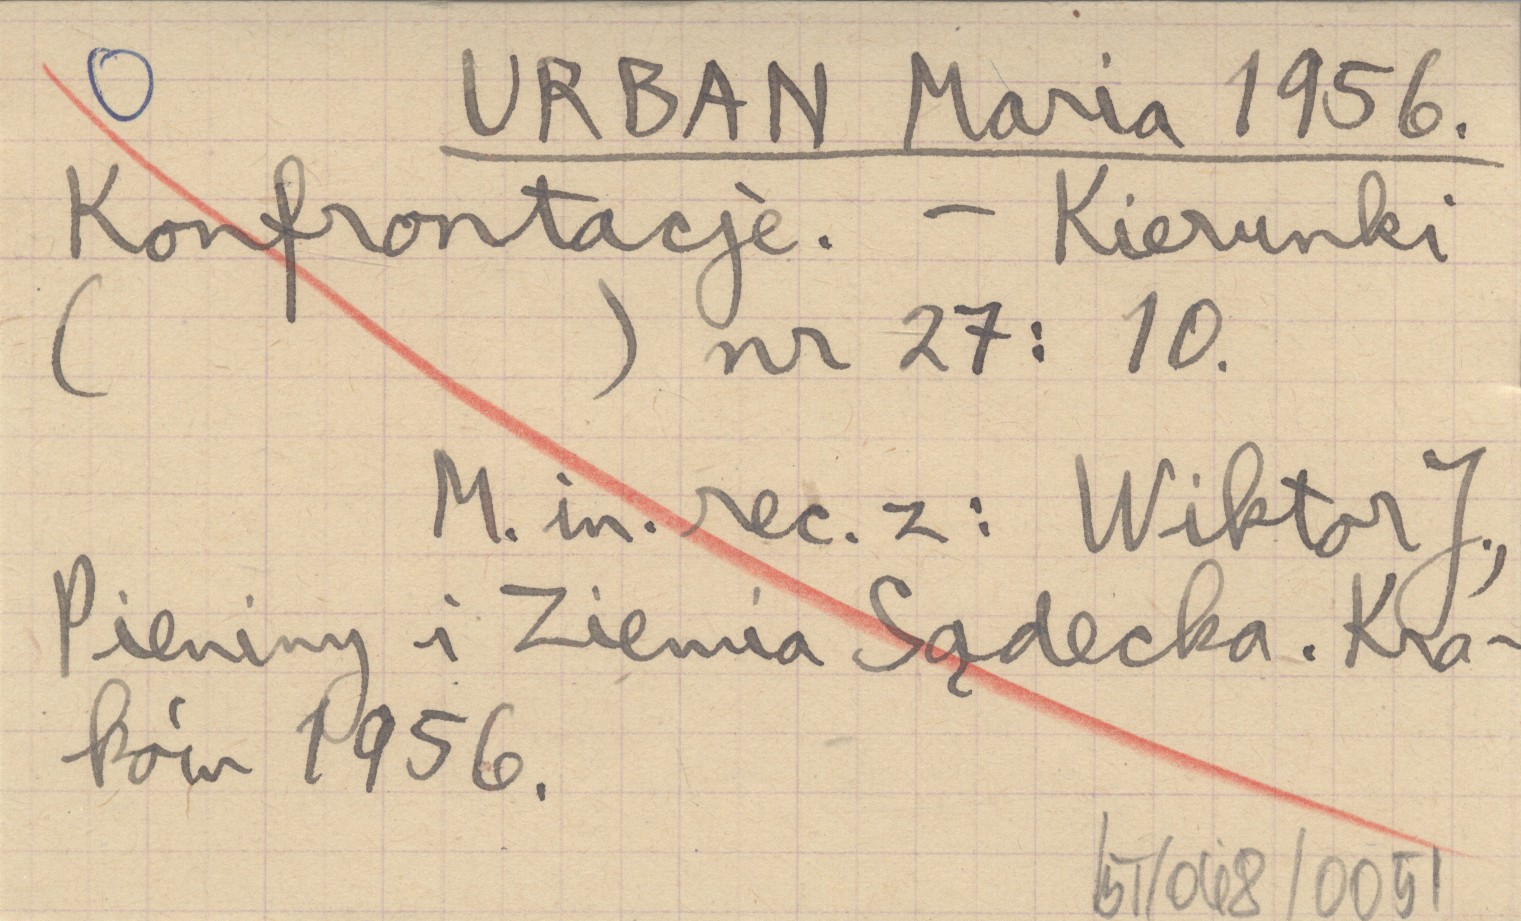 O
URBAN Maria 1956.
Konfrontacje. - Kierunki
( ) nr 27: 10.
M. in. rec. z: Wiktor J.,
Pieniny i Ziemia Sądecka. Kra-
ków 1956.
/0051